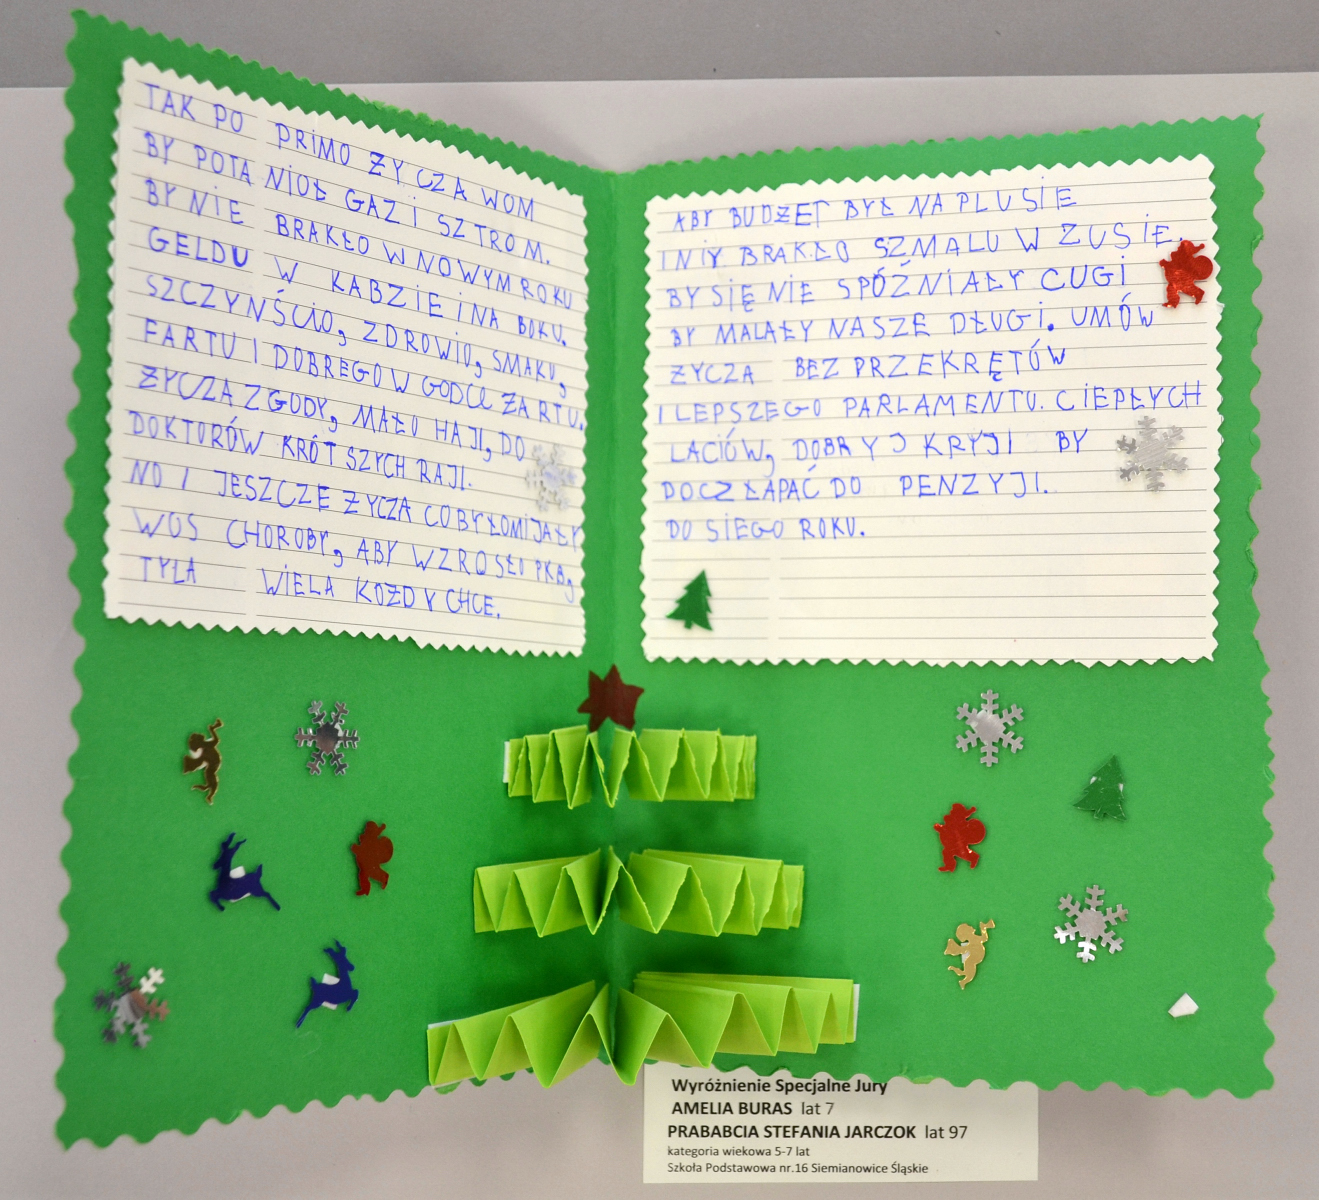 TAK PO PRIMO ŻYCZA WOM
BY POTANIOŁ GAZ I SZTROM.
BY NIE BRAKŁO W NOWYM ROKU
GELDU W KABZIE I NA BOKU.
SZCZYNŚCIO, ZDROWIO, SMAKU,
FARTU I DOBREGO W GODCE ŻARTU.
ŻYCZA ZGODY, MAŁO HAJI, DO
DOKTORÓW KRÓTSZYCH RAJI.
NO I JESZCZE ŻYCZA COBY ŁOMIJAŁY
WOS CHOROBY, ABY WZROSŁO PKB,
TYLA WIELA KOŻDY CHCE.
ABY BUDŻET BYŁ NA PLUSIE
I NIY BRAKŁO SZMALU W ZUSIE.
BY SIĘ NIE SPÓŹNIAŁY CUGI
BY MALAŁY NASZE DŁUGI. UMÓW
ŻYCZA BEZ PRZEKRĘTÓW
I LEPSZEGO PARLAMENTU. CIEPŁYCH
LACIÓW, DOBRYJ KRYJI BY
DOCZŁAPAĆ DO PENZYJI.
DO SIEGO ROKU.
Wyróżnienie Specjalne Jury
AMELIA BURAS lat 7
PRABABCIA STEFANIA JARCZOK lat 97
kategoria wiekowa 5-7 lat
Szkoła Podstawowa nr.16 Siemianowice Śląskie